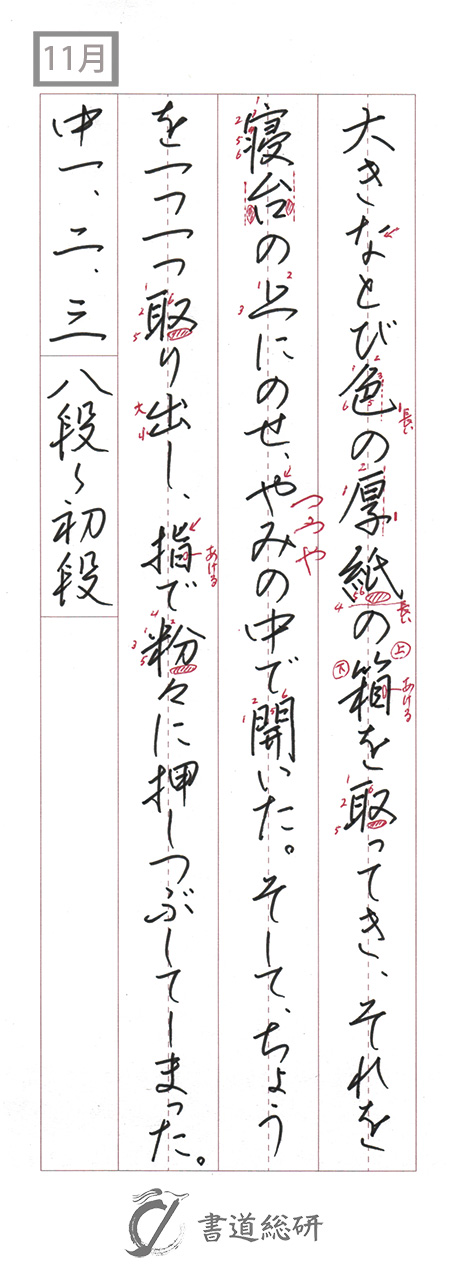 11月
大きなとび色の厚紙の箱を取ってき、それを
寝台の上にのせ、やみの中で開いた。そして、ちょう
を一つ一つ取り出し、指で粉々に押しつぶしてしまった。
中一、二、三
八段〜初段
長い
長い
上
下
あける
つつや
あける
大
小
書道総研